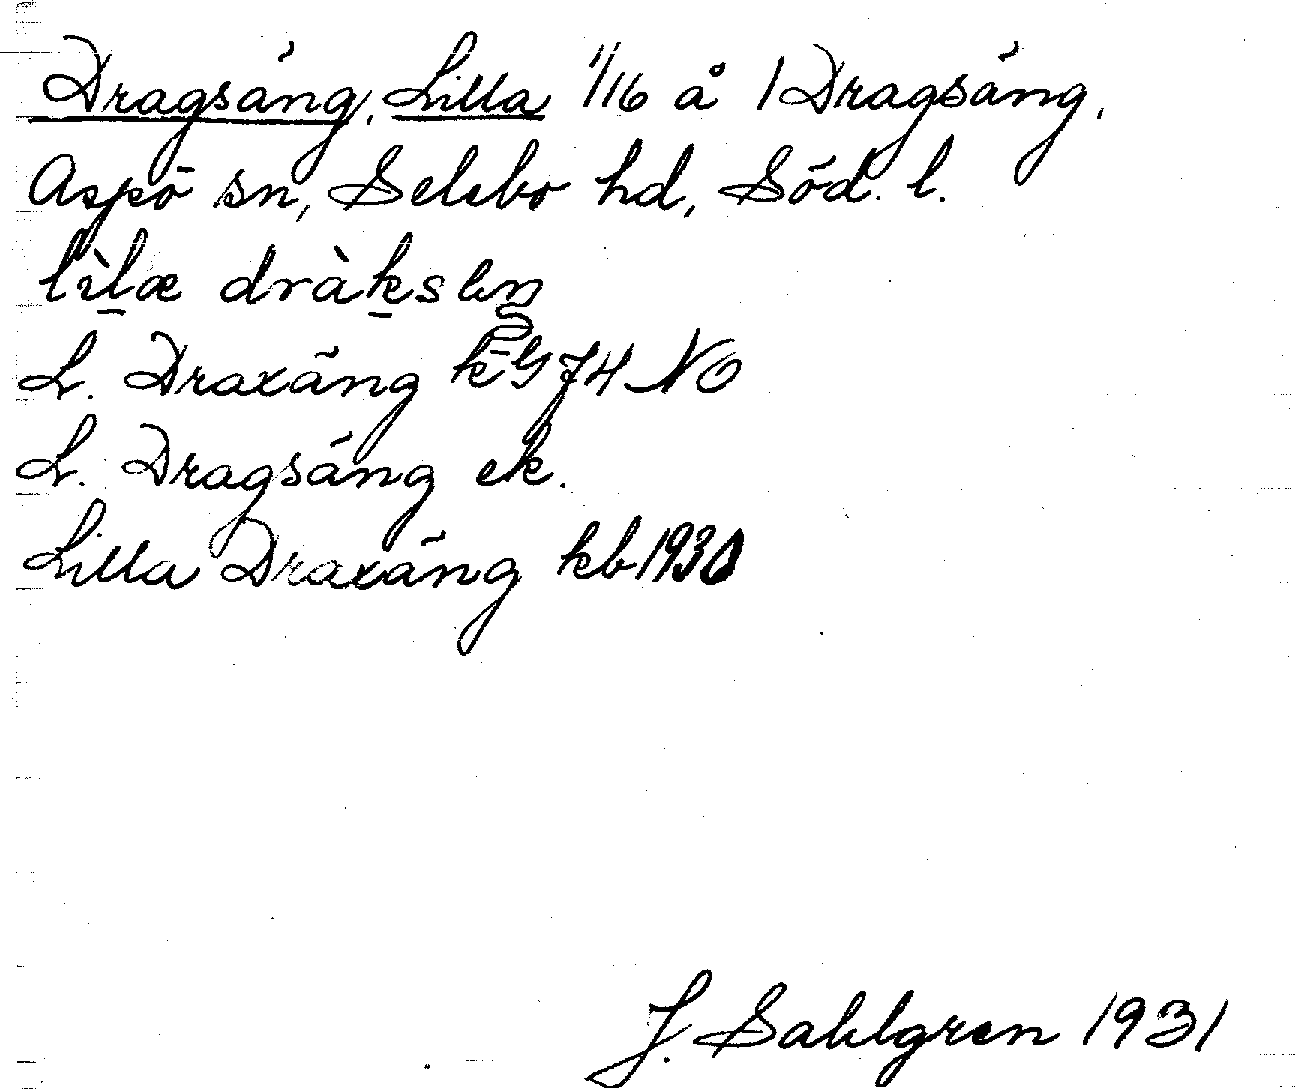 Dragsäng, Lilla 1/16 å 1 Dragsäng,
Aspö sn, Selebo hd, Söd. l.
lìlæ dràksɛŋ
L. Draxäng k-bl 74 NO
L. Dragsäng ek.
Lilla Draxäng kb 1930
J. Sahlgren 1931